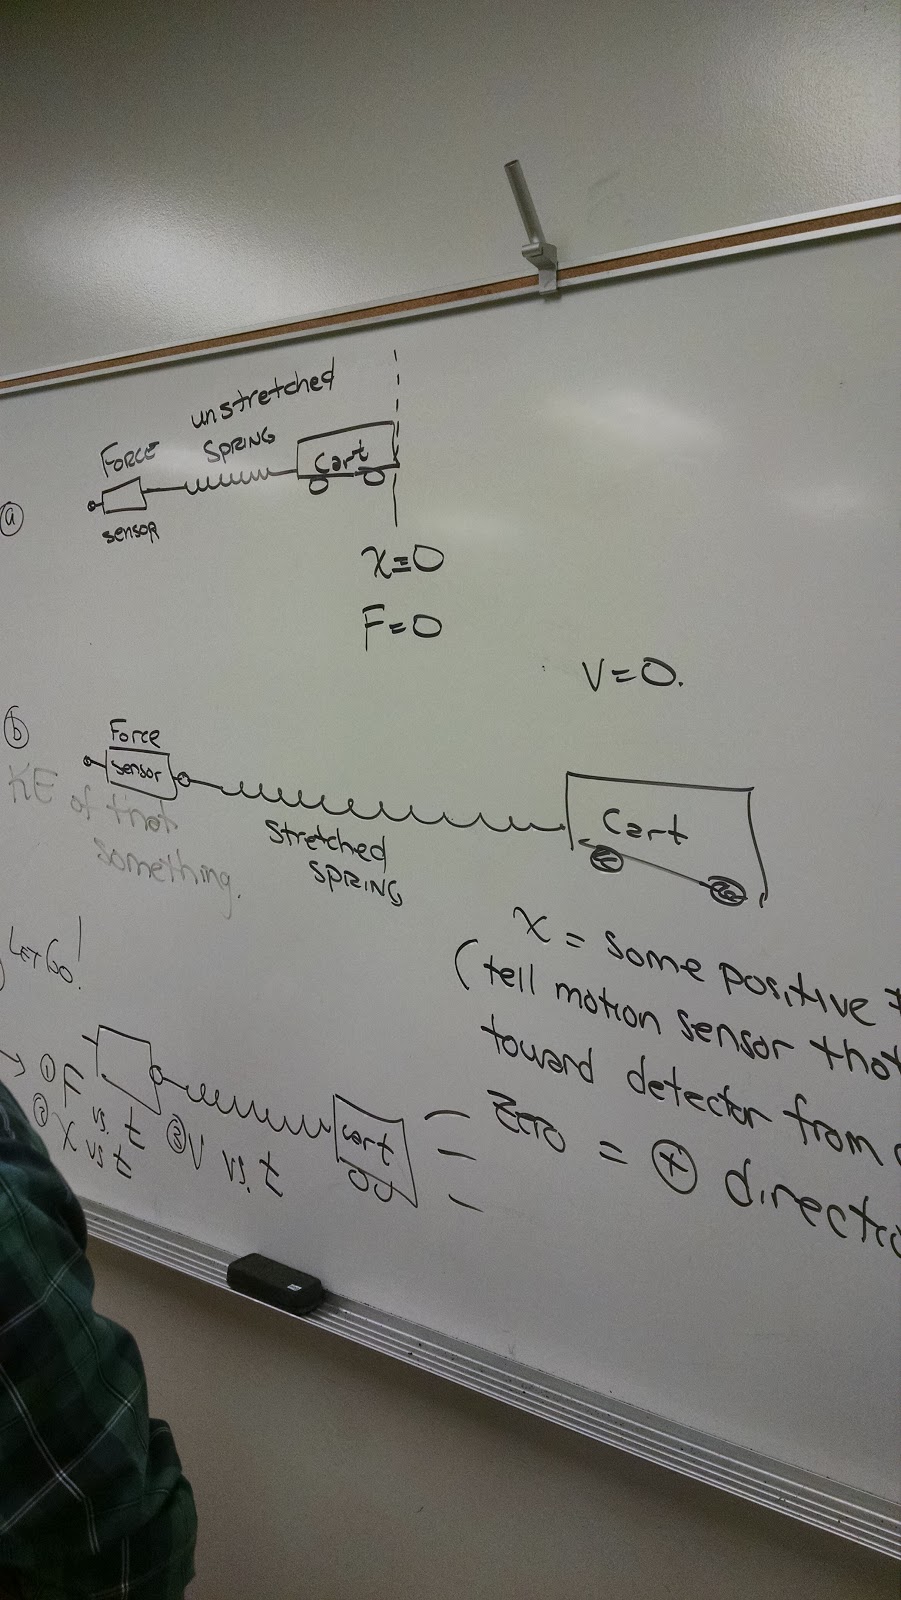 unstretched
FORCE SPRING
Cart
sensor
ⓐ
x=0
F=0
V=0.
ⓑ
Force
sensor
KE of that
something.
stretched
SPRING
Cart
x = some positive
(tell motion sensor that
toward detector from
zero = ⊕ direction
Let Go!
① F vs. t
② x vs t
③ V vs. t
cart